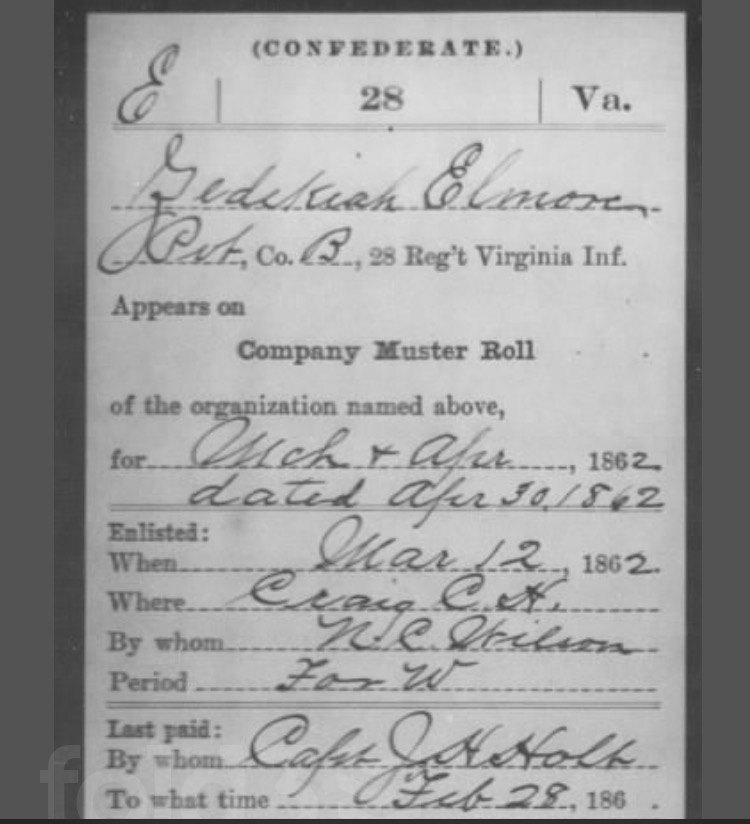 (CONFEDERATE.)
E | 28 | Va.
Zedekiah Elmore
Pvt, Co. B, 28 Reg't Virginia Inf.
Appears on
Company Muster Roll
of the organization named above,
for Mch & Apr, 1862.
dated Apr 30, 1862
Enlisted:
When Mar 12, 1862.
Where Craig C. H.
By whom N. C. Wilson
Period For W
Last paid:
By whom Capt J H Holt
To what time Feb 28, 186 .